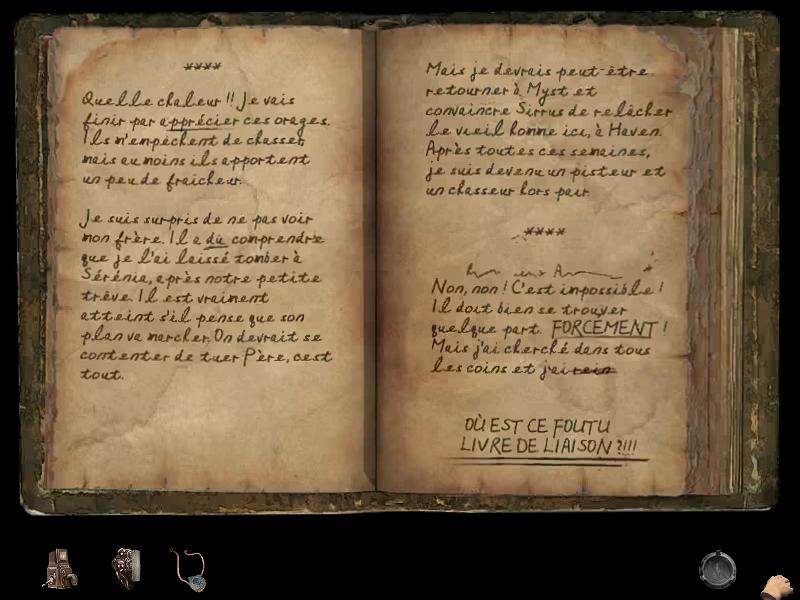 ****
Quelle chaleur !! Je vais
finir par apprécier ces orages.
Ils m'empêchent de chasser,
mais au moins ils apportent
un peu de fraîcheur.
Je suis surpris de ne pas voir
mon frère. Il a dû comprendre
que je l'ai laissé tomber à
Sérénia, après notre petite
trêve. Il est vraiment
atteint s'il pense que son
plan va marcher. On devrait se
contenter de tuer Père, c'est
tout.
Mais je devrais peut-être
retourner à Myst et
convaincre Sirrus de relâcher
le vieil homme ici, à Haven.
Après toutes ces semaines,
je suis devenu un pisteur et
un chasseur hors pair.
****
Non, non ! C'est impossible !
Il doit bien se trouver
quelque part. FORCEMENT !
Mais j'ai cherché dans tous
les coins et j'ai rein
OÙ EST CE FOUTU
LIVRE DE LIAISON ?!!!